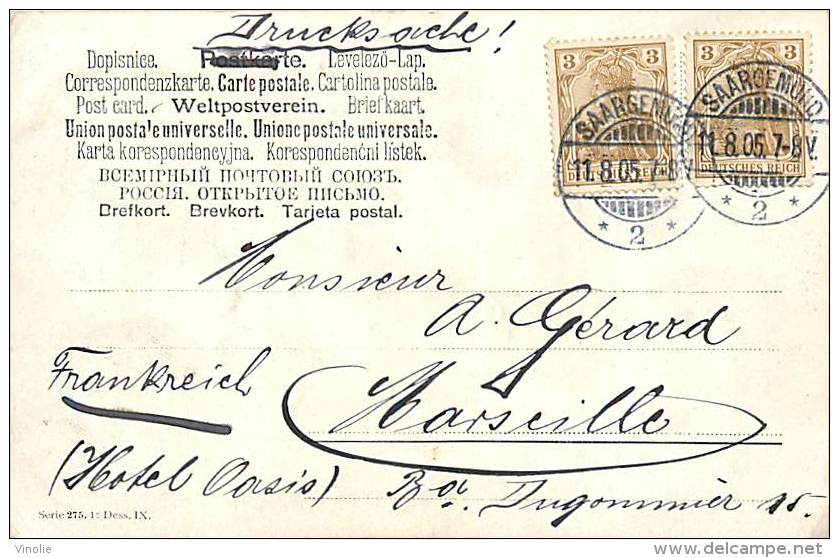 Drucksache!
Dopisnice. Postkarte. Levelező-Lap.
Correspondenzkarte. Carte postale. Cartolina postale.
Post card. Weltpostverein. Briefkaart.
Union postale universelle. Unione postale universale.
Karta korespondencyjna. Korespondenční listek.
ВСЕМІРНЫЙ ПОЧТОВЫЙ СОЮЗЪ.
РОССІЯ. ОТКРЫТОЕ ПИСЬМО.
Brefkort. Brevkort. Tarjeta postal.
3 3
DEUTSCHES REICH
SAARGEMÜND
11.8.05.
* 2 *
3 3
DEUTSCHES REICH
SAARGEMÜND
11.8.05. 7-8V.
* 2 *
Monsieur
A. Gérard
Frankreich
Marseille
(Hotel Oasis) Bd. Dugommier 15.
Serie 275. 1: Dess. IX.
©Vinolie
www.delcampe.net